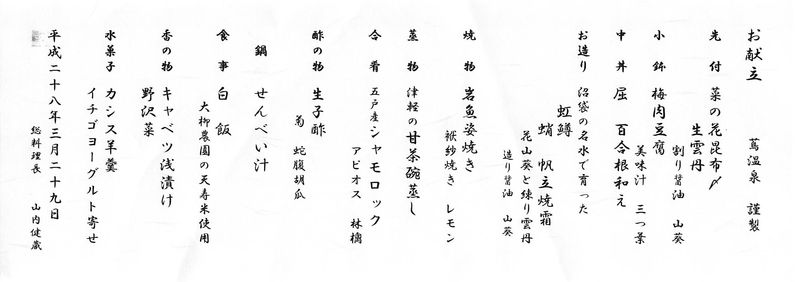 お献立　蔦温泉　謹製
先付　菜の花昆布〆
生雲丹
割り醤油　山葵
小鉢　梅肉豆腐
美味汁　三つ葉
中丼　屈　百合根和え
お造り　沼袋の名水で育った
虹鱒
蛸　帆立焼霜
花山葵と練り雲丹
造り醤油　山葵
焼物　岩魚姿焼き
袱紗焼き　レモン
蒸物　津軽の甘茶碗蒸し
合肴　五戸産シャモロック
アピオス　林檎
酢の物　生子酢
菊　蛇腹胡瓜
鍋　せんべい汁
食事　白飯
大柳農園の天寿米使用
香の物　キャベツ浅漬け
野沢菜
水菓子　カシス羊羹
イチゴヨーグルト寄せ
平成二十八年三月二十九日
総料理長　山内健蔵